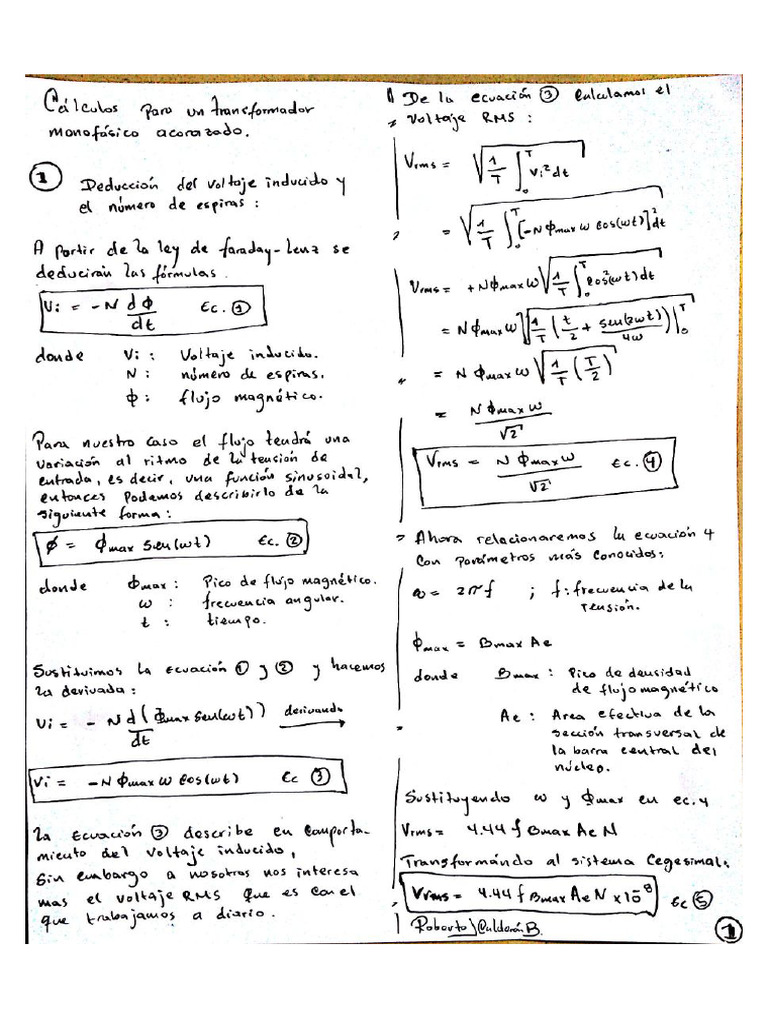 Cálculos para un transformador
monofásico acorazado.
① Deducción del voltaje inducido y
el número de espiras:
A partir de la ley de faraday-Lenz se
deducirán las fórmulas.
Vi = -N dϕ/dt Ec. ①
donde Vi: Voltaje inducido.
N: número de espiras.
ϕ: flujo magnético.
Para nuestro caso el flujo tendrá una
variación al ritmo de la tensión de
entrada, es decir, una función sinusoidal,
entonces podemos describirlo de la
siguiente forma:
ϕ = ϕmax sen(wt) Ec. ②
donde ϕmax: Pico de flujo magnético.
w: frecuencia angular.
t: tiempo.
Sustituimos la ecuación ① y ② y hacemos
la derivada:
Vi = - N d(ϕmax sen(wt))/dt derivando
Vi = -N ϕmax w Cos(wt) Ec ③
La Ecuación ③ describe en comporta-
miento del voltaje inducido,
Sin embargo a nosotros nos interesa
mas el voltaje RMS que es con el
que trabajamos a diario.
De la ecuación ③ Calculamos el
Voltaje RMS:
Vrms = √(1/T ∫₀ᵀ Vi² dt)
= √(1/T ∫₀ᵀ [-N ϕmax w cos(wt)]² dt)
Vrms = +Nϕmax w √(1/T ∫₀ᵀ Cos²(wt) dt)
= N ϕmax w √(1/T (t/2 + sen(2wt)/4w)|₀ᵀ)
= N ϕmax w √(1/T (T/2))
= N ϕmax w/√2
Vrms = N ϕmax w/√2 Ec. ④
Ahora relacionaremos la ecuación 4
con parámetros más conocidos:
w = 2πf ; f: frecuencia de la
tensión.
ϕmax = Bmax Ae
donde Bmax: Pico de densidad
de flujo magnético
Ae: Area efectiva de la
sección transversal de
la barra central del
núcleo.
Sustituyendo w y ϕmax en ec. 4
Vrms = 4.44 f Bmax Ae N
Transformándo al sistema Cegesimal:
Vrms = 4.44 f Bmax Ae N x10⁻⁸ Ec ⑤
Roberto J Calderón B.
①